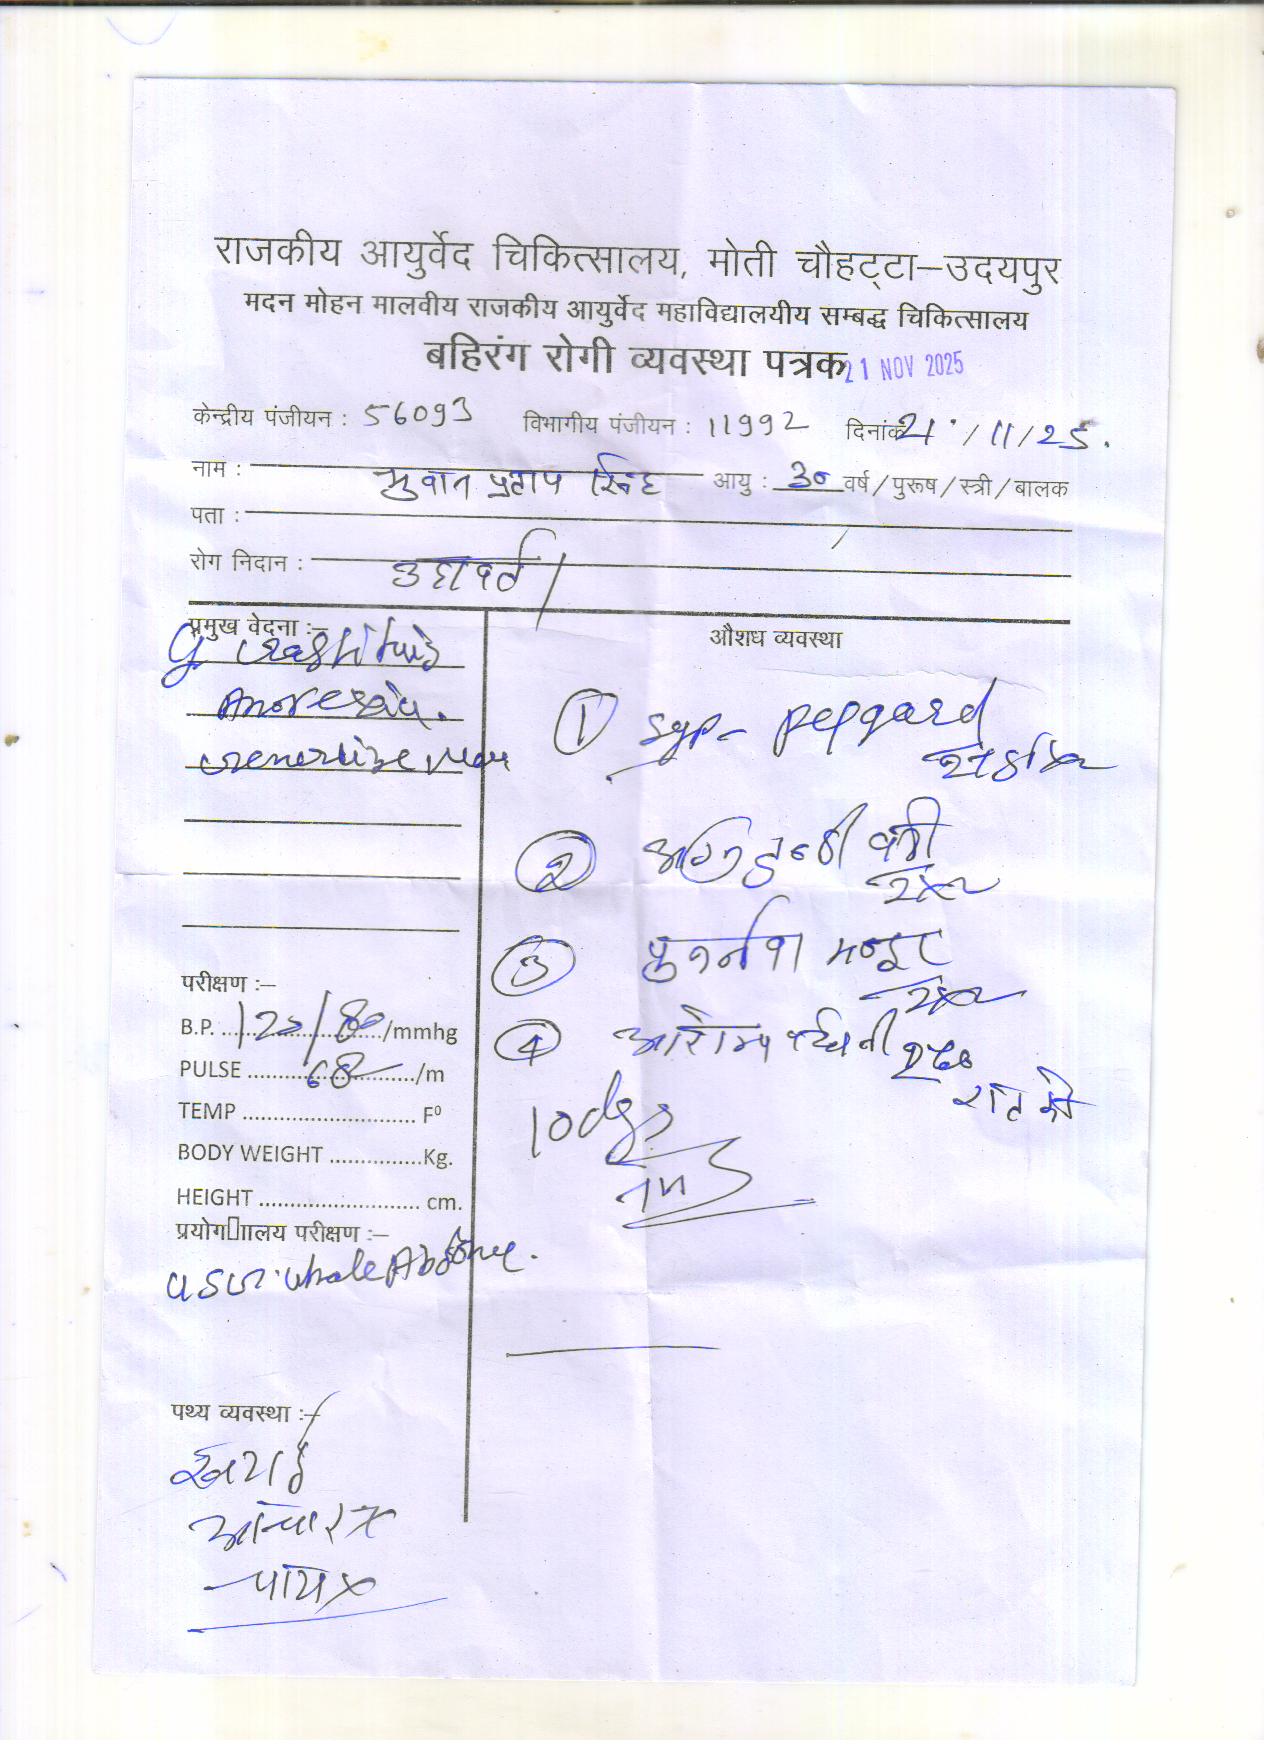 राजकीय आयुर्वेद चिकित्सालय, मोती चौहट्टा–उदयपुर
मदन मोहन मालवीय राजकीय आयुर्वेद महाविद्यालयीय सम्बद्ध चिकित्सालय
बहिरंग रोगी व्यवस्था पत्रक
21 NOV 2025
केन्द्रीय पंजीयन : 56093 विभागीय पंजीयन : 11992 दिनांक 21/11/25.
नाम : प्रताप सिंह आयु : 30 वर्ष/पुरूष/स्त्री/बालक
पता :
रोग निदान : उदावर्त
प्रमुख वेदना :–
Anorexia.
औशध व्यवस्था
① Syp– pepgard
②  वटी
2x2
③ पुनर्नवा मन्डूर
2x2
④ आरोग्य वर्धनी
रात को
10 days
परीक्षण :–
B.P. 120/80 /mmhg
PULSE 68 /m
TEMP ............................ F⁰
BODY WEIGHT ...............Kg.
HEIGHT .......................... cm.
प्रयोग□ालय परीक्षण :–
USG. whole Abdomen.
पथ्य व्यवस्था :–
खटाई
आचार x
चाय x